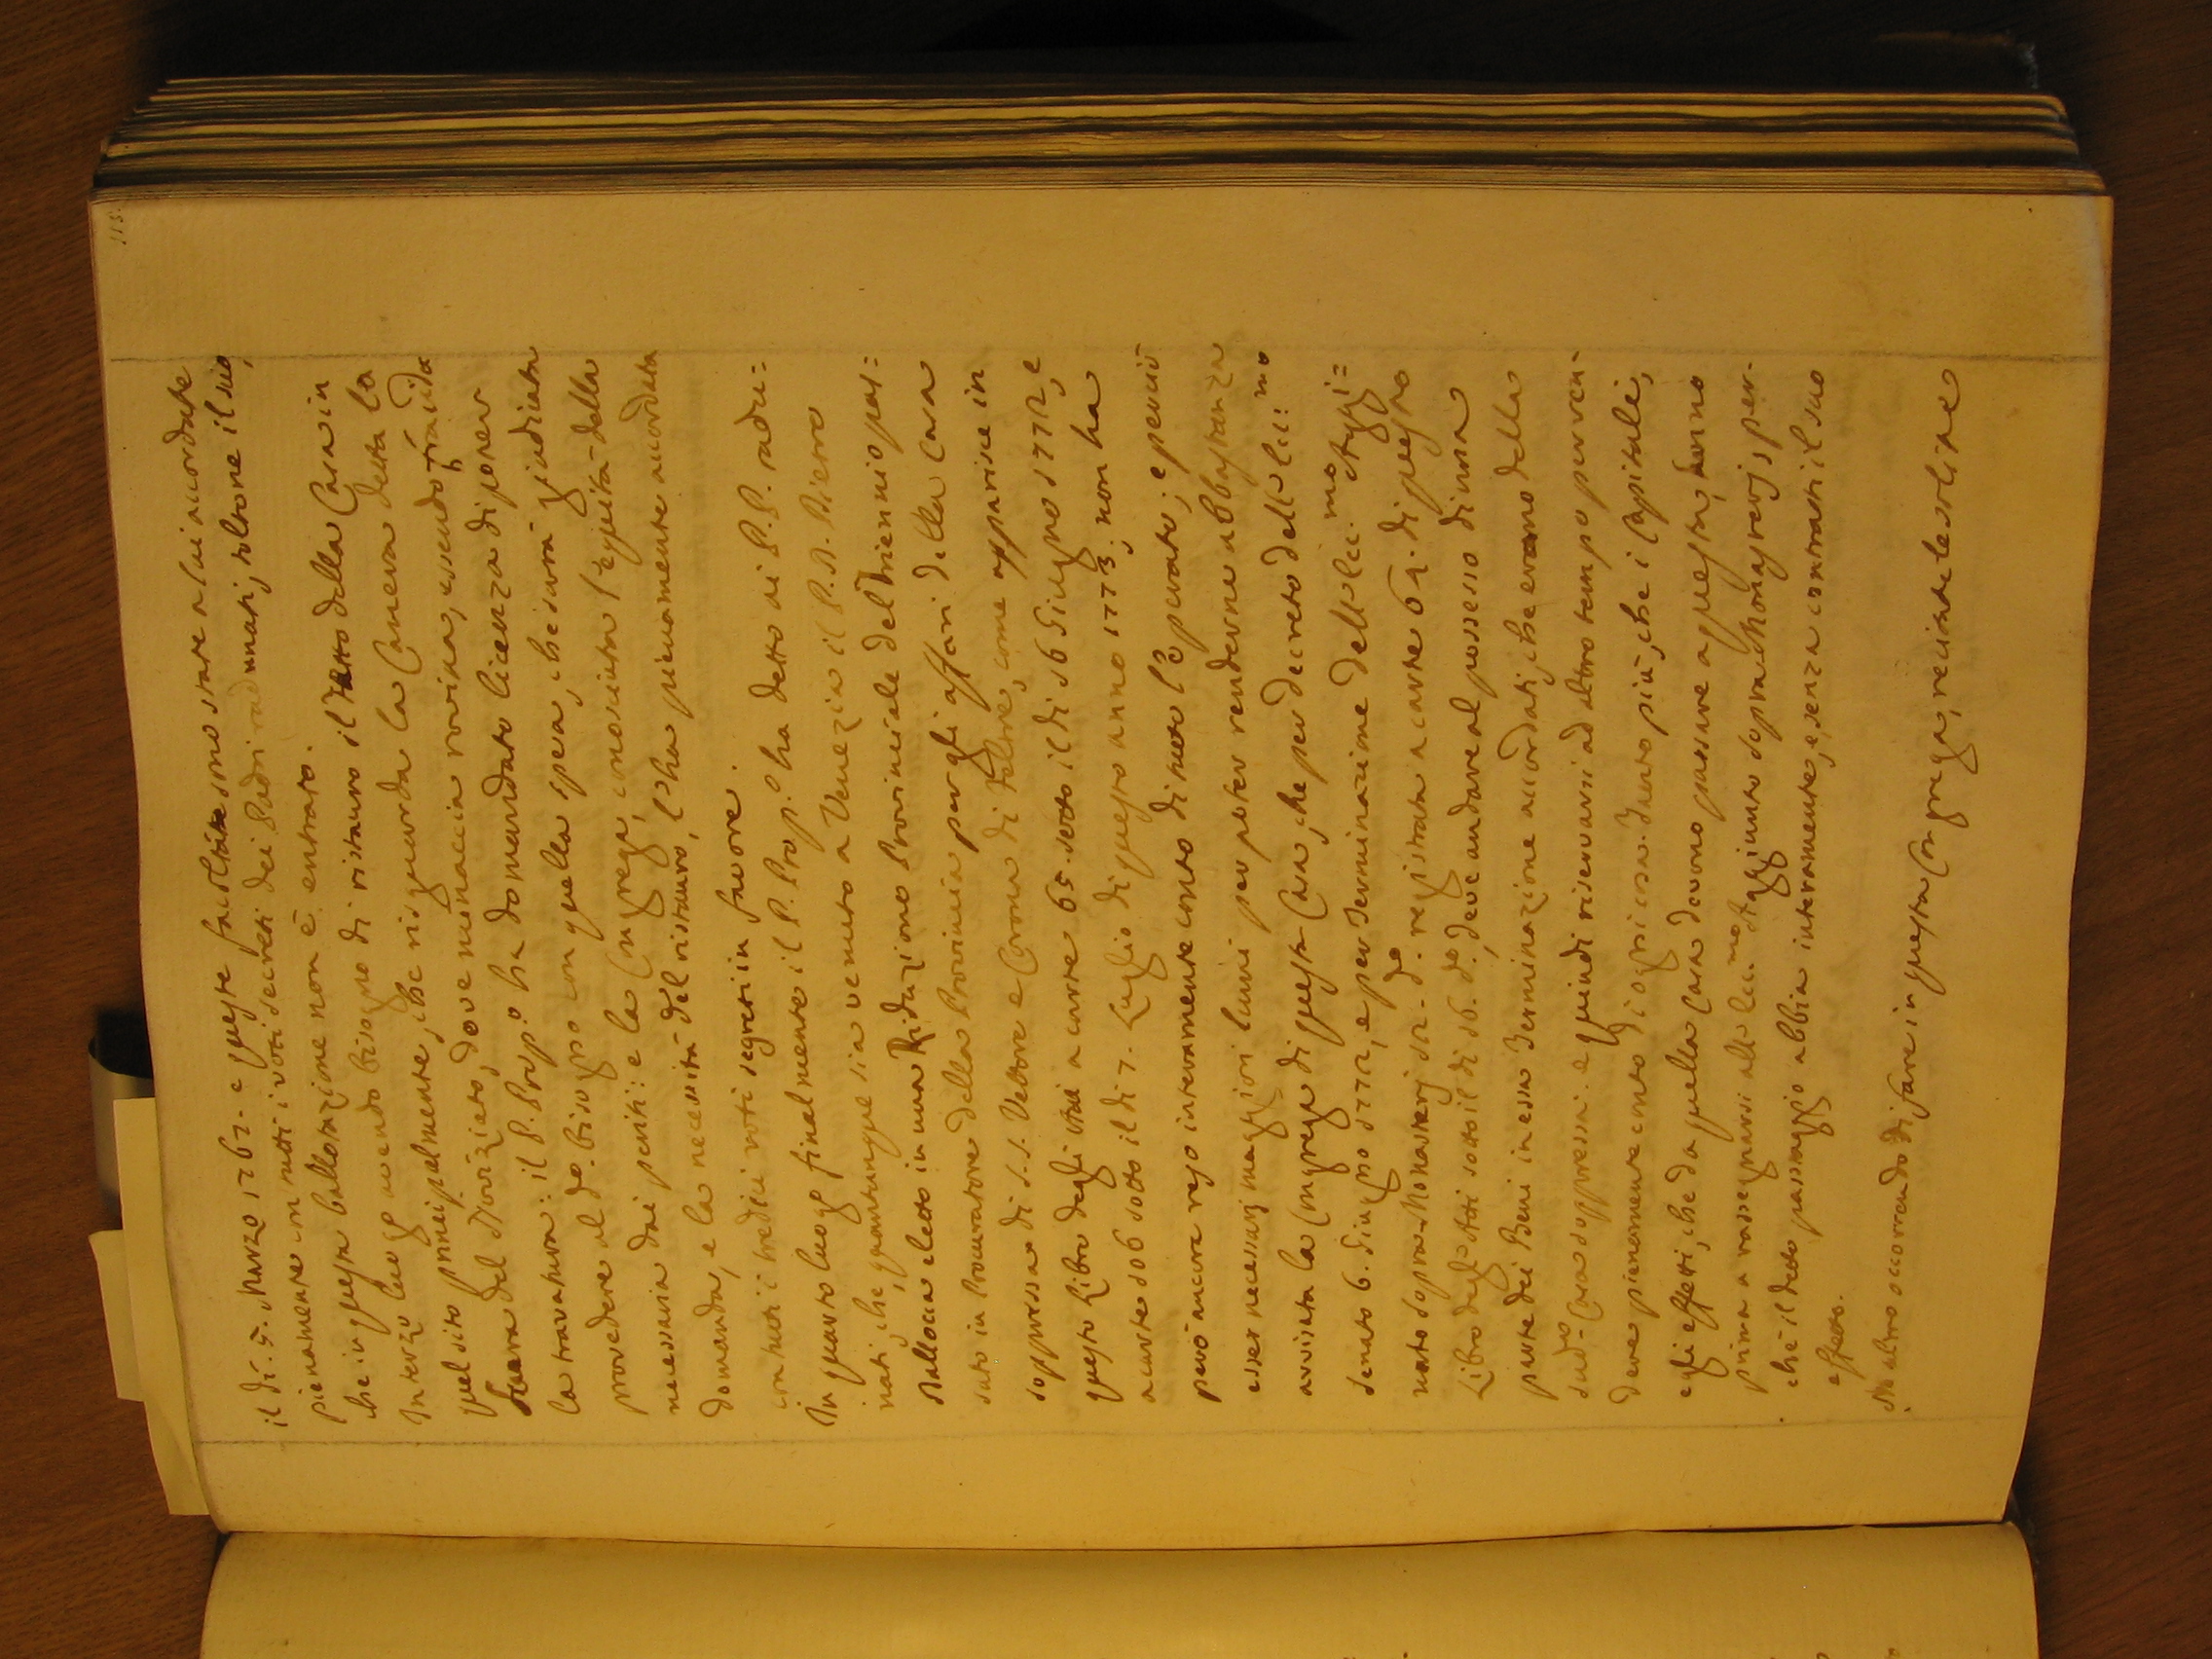 113.
il dì. 5. Marzo 1762. e queste facoltate sono state a lui accordate
pienamente con tutti i voti secreti dei Padri radunati, soltone il suo,
che in questa ballotazione non è entrato.
In terzo luogo avendo bisogno di ristauro il Tetto della Casa in
quel sito principalmente, che risguarda la Caneva detta la
Caneva del Noviziato, dove minaccia rovina, essendo fraida
la travatura: il P. Prop.o ha domandato licenza di poter
provedere al do. bisogno con quella spesa, che sarà giudicata
necessaria dai periti: e la Congrega, conosciuta l'equità della
domanda, e la necessità del ristauro, l'ha pienamente accordata
con tutti i tredici voti segreti in favore.
In quarto luogo finalmente il P. Prop.o ha detto ai P.P. radu=
nati, che, quantunque sia venuto a Venezia il P. D. Pietro
Rallocca eletto in una Riduzione Provinciale del Triennio pas=
sato in Procuratore della Provincia per gli affari della Casa
soppressa di S.S. Vettore e Corona di Feltre, come apparisce in
questo Libro degli Atti a carte 65. sotto il dì 16 Giugno 1772, e
a carte 106 sotto il dì 7. Luglio di questo anno 1773; non ha
però ancora reso interamente conto di tutto l'operato; e perciò
esser necessarj maggiori lumi per poter renderne abbastanza
avvisata la Congrega di questa Casa, che per decreto dell'Ecc:mo
Senato 6. Giugno 1772, e per Terminazione dell'Ecc.mo Aggi=
unto sopra Monasterj 12. do. registrata a carte 64. di questo
Libro degli Atti sotto il dì 16. do, deve andare al possesso di una
parte dei Beni in essa Terminazione accordati, che erano della
sud.a Casa soppressa: e quindi riservarsi ad altro tempo per ren-
dere pienamente conto di ogni cosa. Tanto più, che i Capitali,
e gli effetti, che da quella Casa devono passare a questa, hanno
prima a rassegnarsi all'Ecc.mo Aggiunto sopra Monasterj, per-
chè il detto passaggio abbia interamente, e senza contrasti il suo
effetto.
Ne altro occorrendo di fare in questa Congrega, recitate le solite